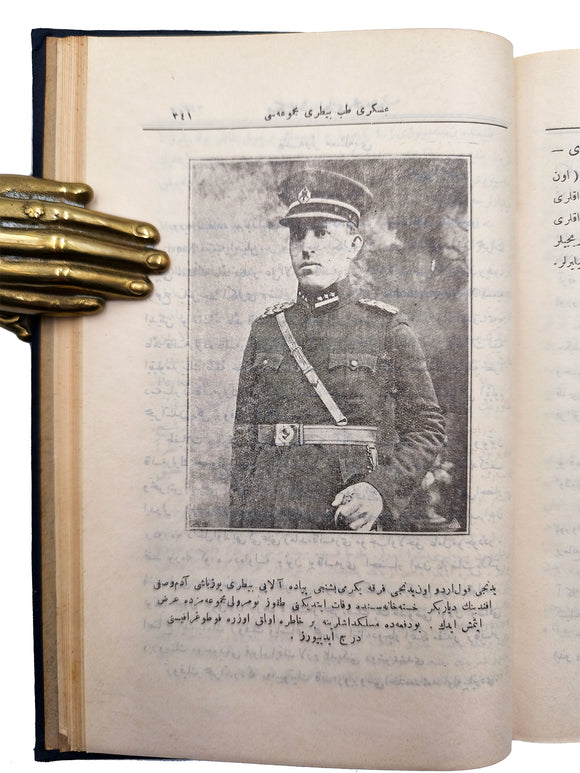 ٣٤١
عسكرى طب بيطرى مجموعه‌سى
يدنجى قول اردو اون يدنجى فرقه يكرمى بشنجى پياده آلايى بيطرى يوزباشى آدم وصفى
افندينك دياربكر خسته‌خانه‌سنده وفات ايتديكنى طقوز نومرولى مجموعه‌مزده عرض
ايتمش ايدك . بو دفعه‌ده مسلكداشلرينه بر خاطره اولمق اوزره فوطوغرافيسنى
درج ايدييورز .
ى —
( اون
اقلرى
قلرى
يجيلر
يليرلر .